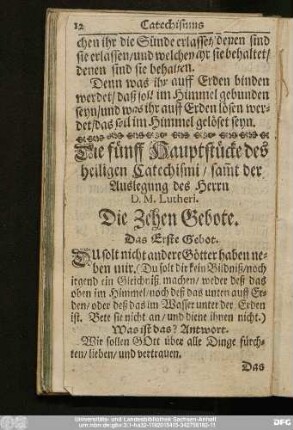 12 Catechismus
chen ihr die Sünde erlasset/denen sind
sie erlassen/und welchen ihr sie behaltet/
denen sind sie behalten.
Denn was ihr auff Erden binden
werdet/daß soll im Himmel gebunden
seyn/und was ihr auff Erden lösen wer-
det/das soll im Himmel gelöset seyn.
Die fünff Hauptstücke des
heiligen Catechismi/samt der
Auslegung des Herrn
D. M. Lutheri.
Die Zehen Gebote.
Das Erste Gebot.
DU solt nicht andere Götter haben ne-
ben mir. (Du solt dir kein Bildniß/noch
irgend ein Gleichniß machen/weder deß das
oben im Himmel/noch deß das unten auff Er-
den/oder deß das im Wasser unter der Erden
ist. Bete sie nicht an/und diene ihnen nicht.)
Was ist das? Antwort.
Wir sollen GOtt über alle Dinge fürch-
ten/lieben/und vertrauen.
Das
Universitäts- und Landesbibliothek Sachsen-Anhalt